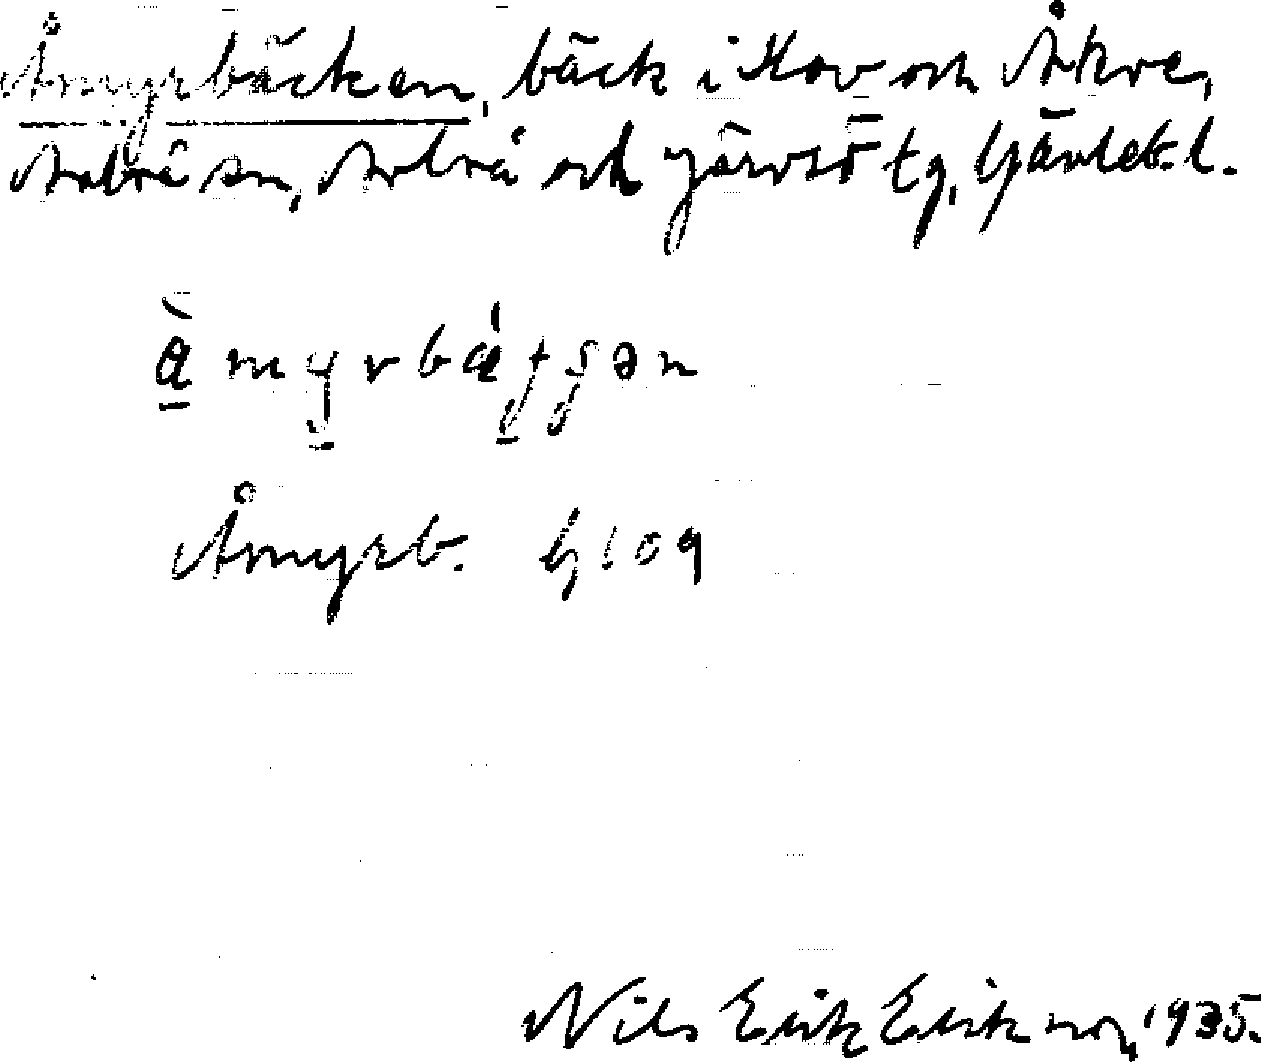 Åmyrbäcken, bäck i Hov och Åkre,
Arbrå sn, Arbrå och Järvsö tg, Gävleb. l.
Åmyrb. G 109
Nils Erik Erikson, 1935.